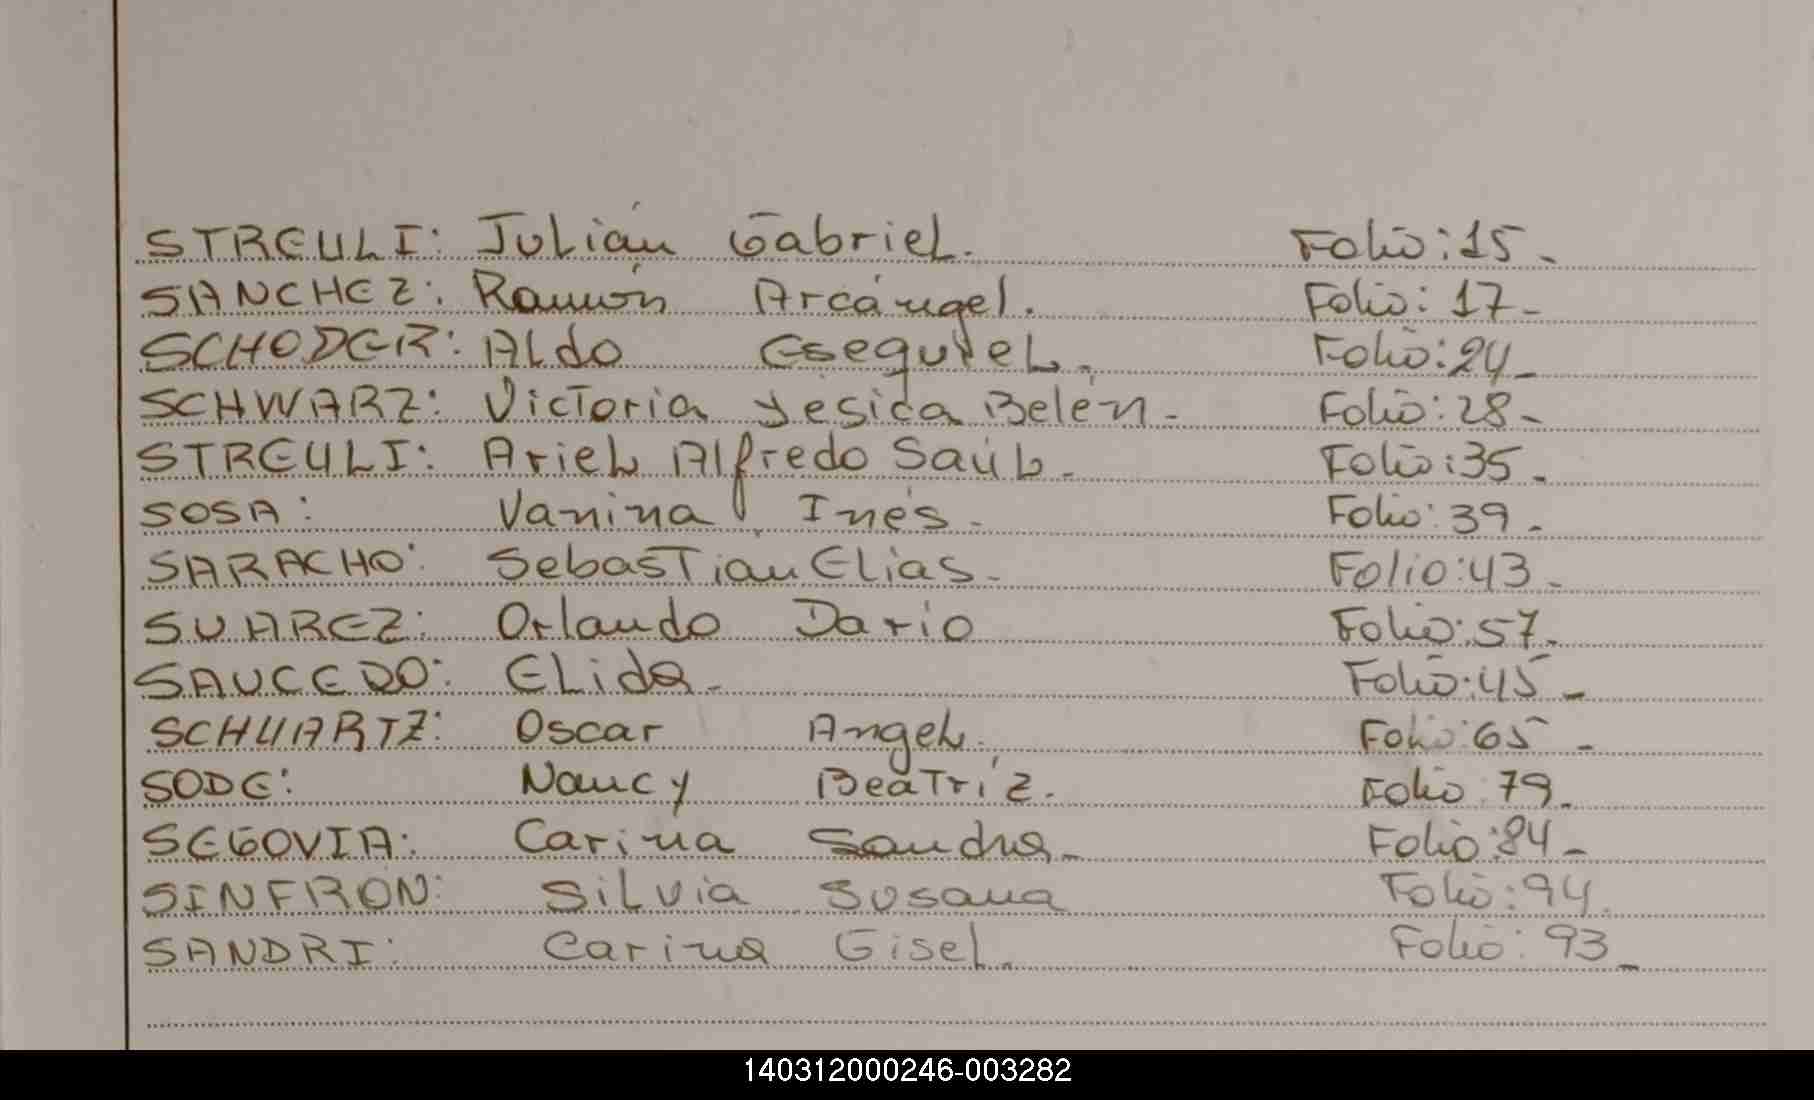 STREULI: Julián Gabriel. Folio: 15_
SANCHEZ: Ramón Arcángel. Folio: 17_
SCHODER: Aldo Esequiel. Folio: 24_
SCHWARZ: Victoria Yésica Belén_ Folio: 28_
STREULI: Ariel Alfredo Saúl_ Folio: 35_
SOSA: Vanina Inés_ Folio: 39_
SARACHO: Sebastián Elías_ Folio: 43_
SUAREZ: Orlando Darío Folio: 57_
SAUCEDO: Elida_ Folio: 45_
SCHUARTZ: Oscar Angel. Folio: 65_
SODE: Nancy Beatríz. Folio 79_
SEGOVIA: Carina Sandra_ Folio: 84_
SINFRÓN: Silvia Susana Folio: 94.
SANDRI: Carina Gisel. Folio: 93_
140312000246-003282